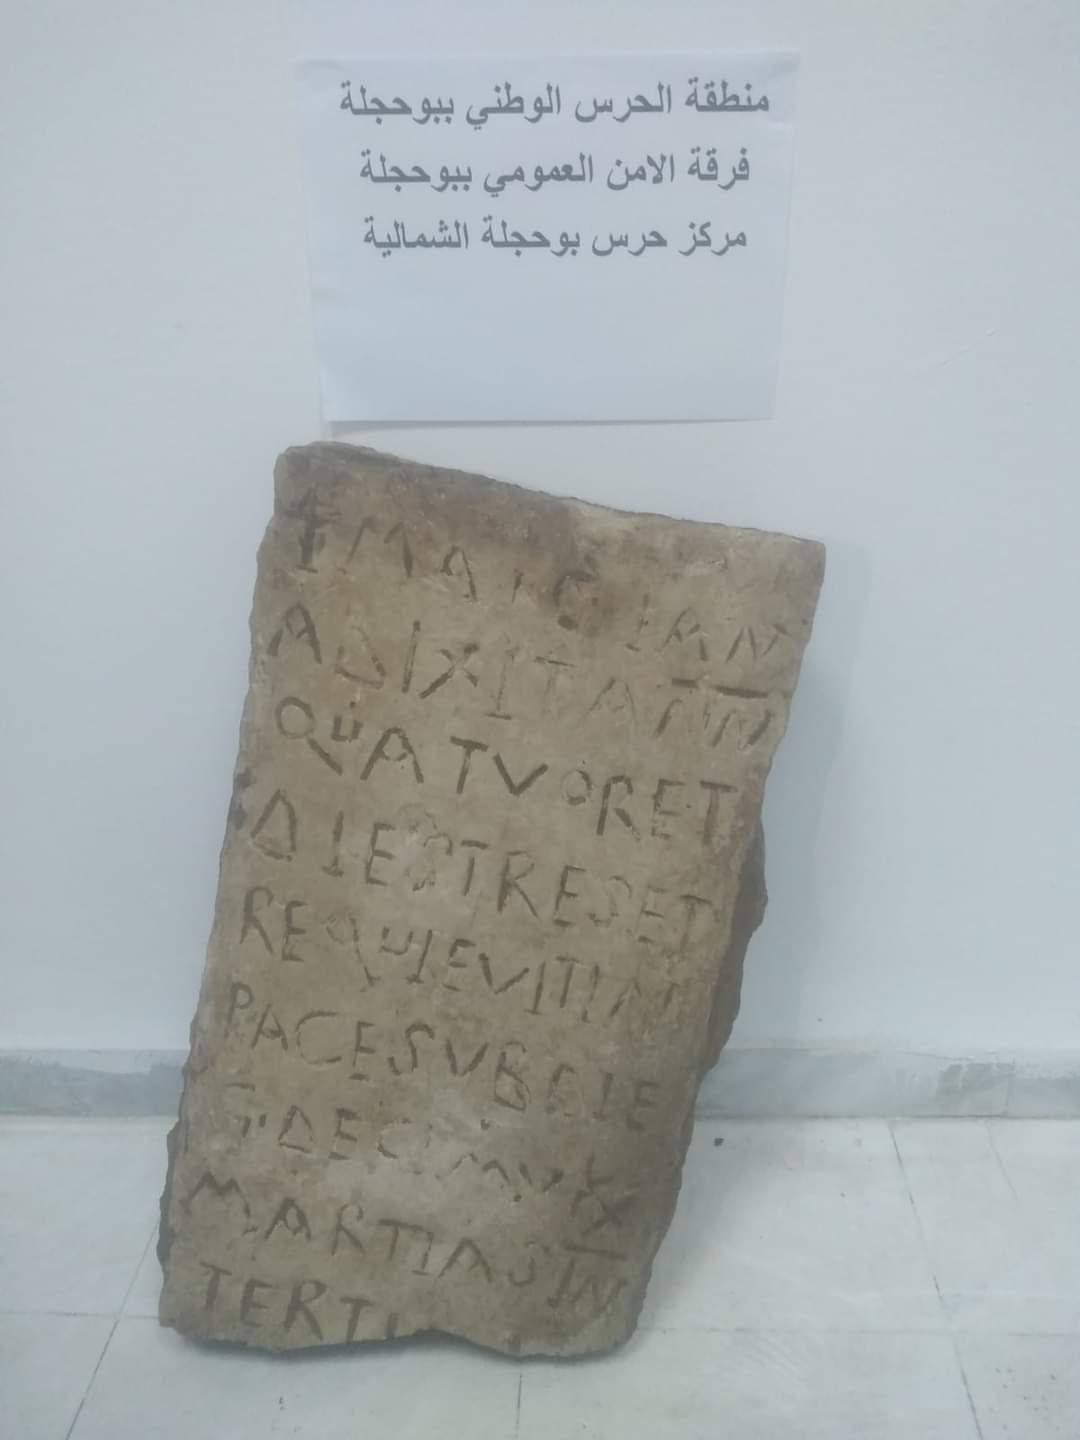 منطقة الحرس الوطني ببوحجلة
فرقة الامن العمومي ببوحجلة
مركز حرس بوحجلة الشمالية
IAN
ADIXITANN
QUATVORET
DIESTRESET
REQUIEVITIN
PACESVBDIE
DECIMV
MARTIASIN
TERTI